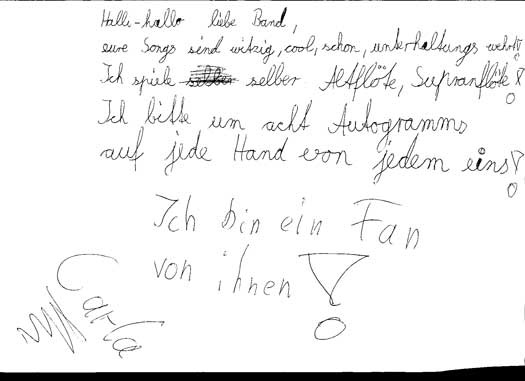 Halli-hallo liebe Band,
eure Songs sind witzig, cool, schön, unterhaltungs wehrt!
Ich spiele selber Altflöte, Supranflöte!
Ich bitte um acht Autogramms
auf jede Hand von jedem eins!
Ich bin ein Fan
von ihnen!
Carla